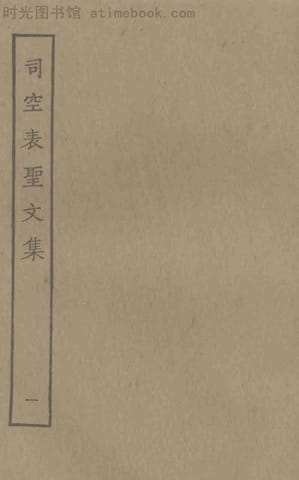 时光图书馆 atimebook.com
司空表聖文集
一